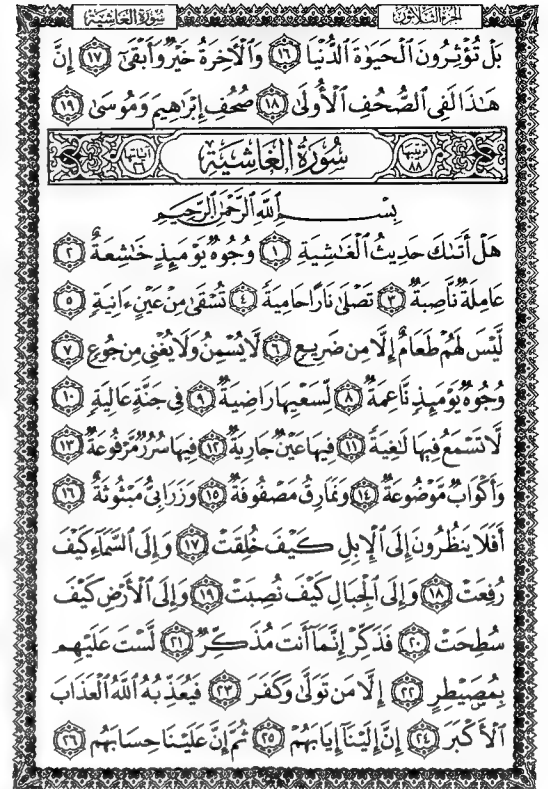 الجزء الثلاثون
سورة الغاشية
بَلْ تُؤْثِرُونَ ٱلْحَيَوٰةَ ٱلدُّنْيَا ١٦ وَٱلْأَخِرَةُ خَيْرٌ وَأَبْقَىٰٓ ١٧ إِنَّ
هَٰذَا لَفِى ٱلصُّحُفِ ٱلْأُولَىٰ ١٨ صُحُفِ إِبْرَٰهِيمَ وَمُوسَىٰ ١٩
ترتيبها ٨٨
سُورَةُ الغَاشِيَةِ
آياتها ٢٦
بِسْمِ ٱللَّهِ ٱلرَّحْمَٰنِ ٱلرَّحِيمِ
هَلْ أَتَىٰكَ حَدِيثُ ٱلْغَٰشِيَةِ ١ وُجُوهٌ يَوْمَئِذٍ خَٰشِعَةٌ ٢
عَامِلَةٌ نَّاصِبَةٌ ٣ تَصْلَىٰ نَارًا حَامِيَةً ٤ تُسْقَىٰ مِنْ عَيْنٍ ءَانِيَةٍ ٥
لَّيْسَ لَهُمْ طَعَامٌ إِلَّا مِن ضَرِيعٍ ٦ لَّا يُسْمِنُ وَلَا يُغْنِى مِن جُوعٍ ٧
وُجُوهٌ يَوْمَئِذٍ نَّاعِمَةٌ ٨ لِّسَعْيِهَا رَاضِيَةٌ ٩ فِى جَنَّةٍ عَالِيَةٍ ١٠
لَّا تَسْمَعُ فِيهَا لَٰغِيَةً ١١ فِيهَا عَيْنٌ جَارِيَةٌ ١٢ فِيهَا سُرُرٌ مَّرْفُوعَةٌ ١٣
وَأَكْوَابٌ مَّوْضُوعَةٌ ١٤ وَنَمَارِقُ مَصْفُوفَةٌ ١٥ وَزَرَابِىُّ مَبْثُوثَةٌ ١٦
أَفَلَا يَنظُرُونَ إِلَى ٱلْإِبِلِ كَيْفَ خُلِقَتْ ١٧ وَإِلَى ٱلسَّمَآءِ كَيْفَ
رُفِعَتْ ١٨ وَإِلَى ٱلْجِبَالِ كَيْفَ نُصِبَتْ ١٩ وَإِلَى ٱلْأَرْضِ كَيْفَ
سُطِحَتْ ٢٠ فَذَكِّرْ إِنَّمَآ أَنتَ مُذَكِّرٌ ٢١ لَّسْتَ عَلَيْهِم
بِمُصَيْطِرٍ ٢٢ إِلَّا مَن تَوَلَّىٰ وَكَفَرَ ٢٣ فَيُعَذِّبُهُ ٱللَّهُ ٱلْعَذَابَ
ٱلْأَكْبَرَ ٢٤ إِنَّ إِلَيْنَآ إِيَابَهُمْ ٢٥ ثُمَّ إِنَّ عَلَيْنَا حِسَابَهُم ٢٦